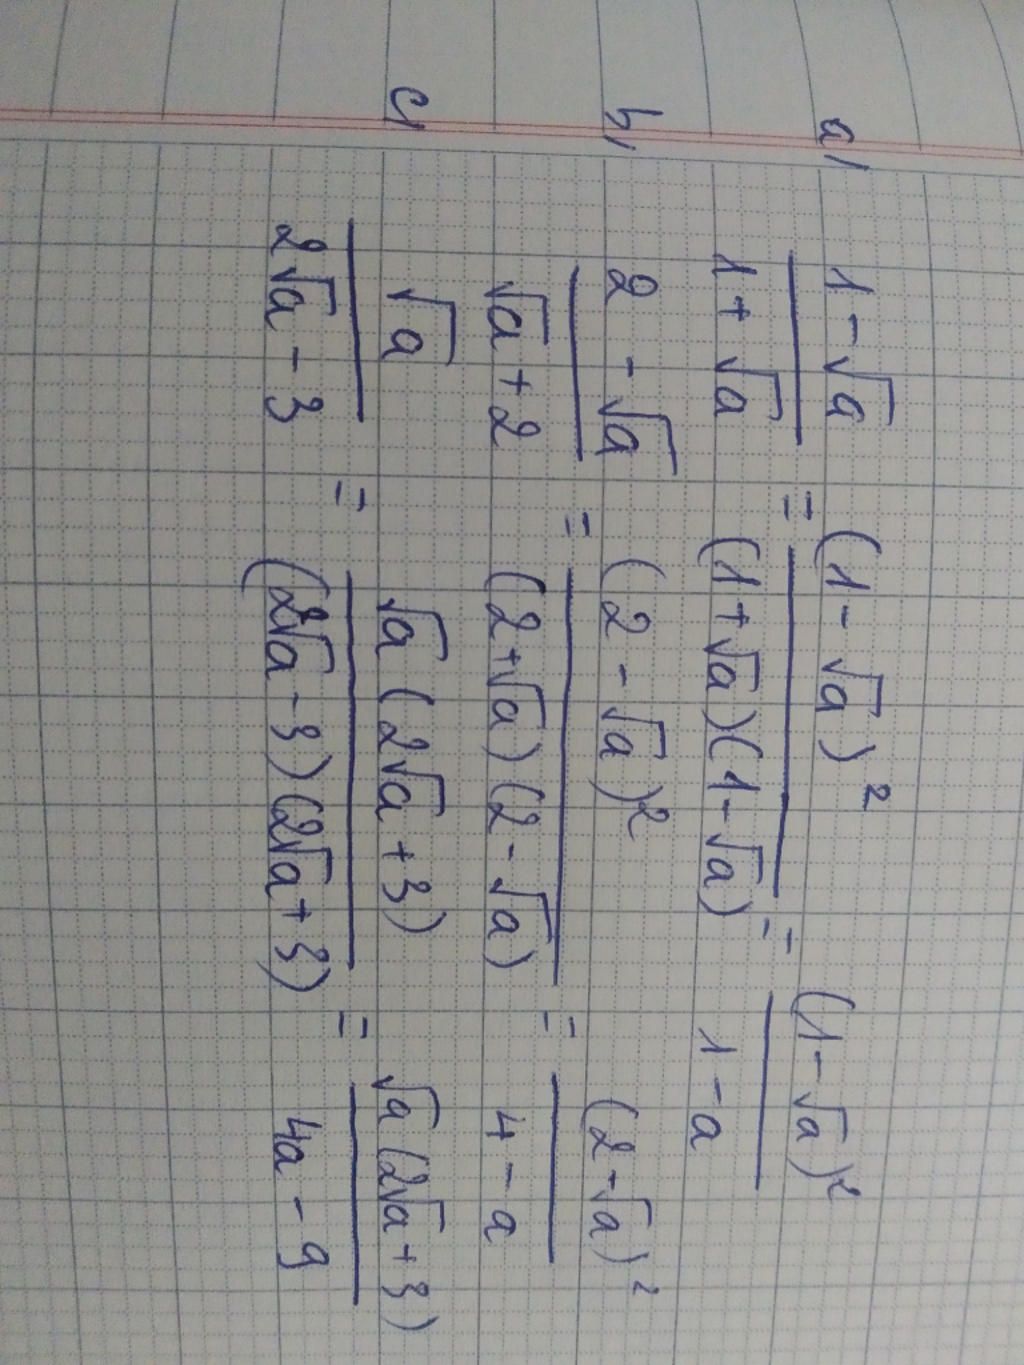 a) (1-√a)/(1+√a) = (1-√a)²/((1+√a)(1-√a)) = (1-√a)²/(1-a)
b) (2-√a)/(√a+2) = (2-√a)²/((2+√a)(2-√a)) = (2-√a)²/(4-a)
c) √a/(2√a-3) = √a(2√a+3)/((2√a-3)(2√a+3)) = √a(2√a+3)/(4a-9)